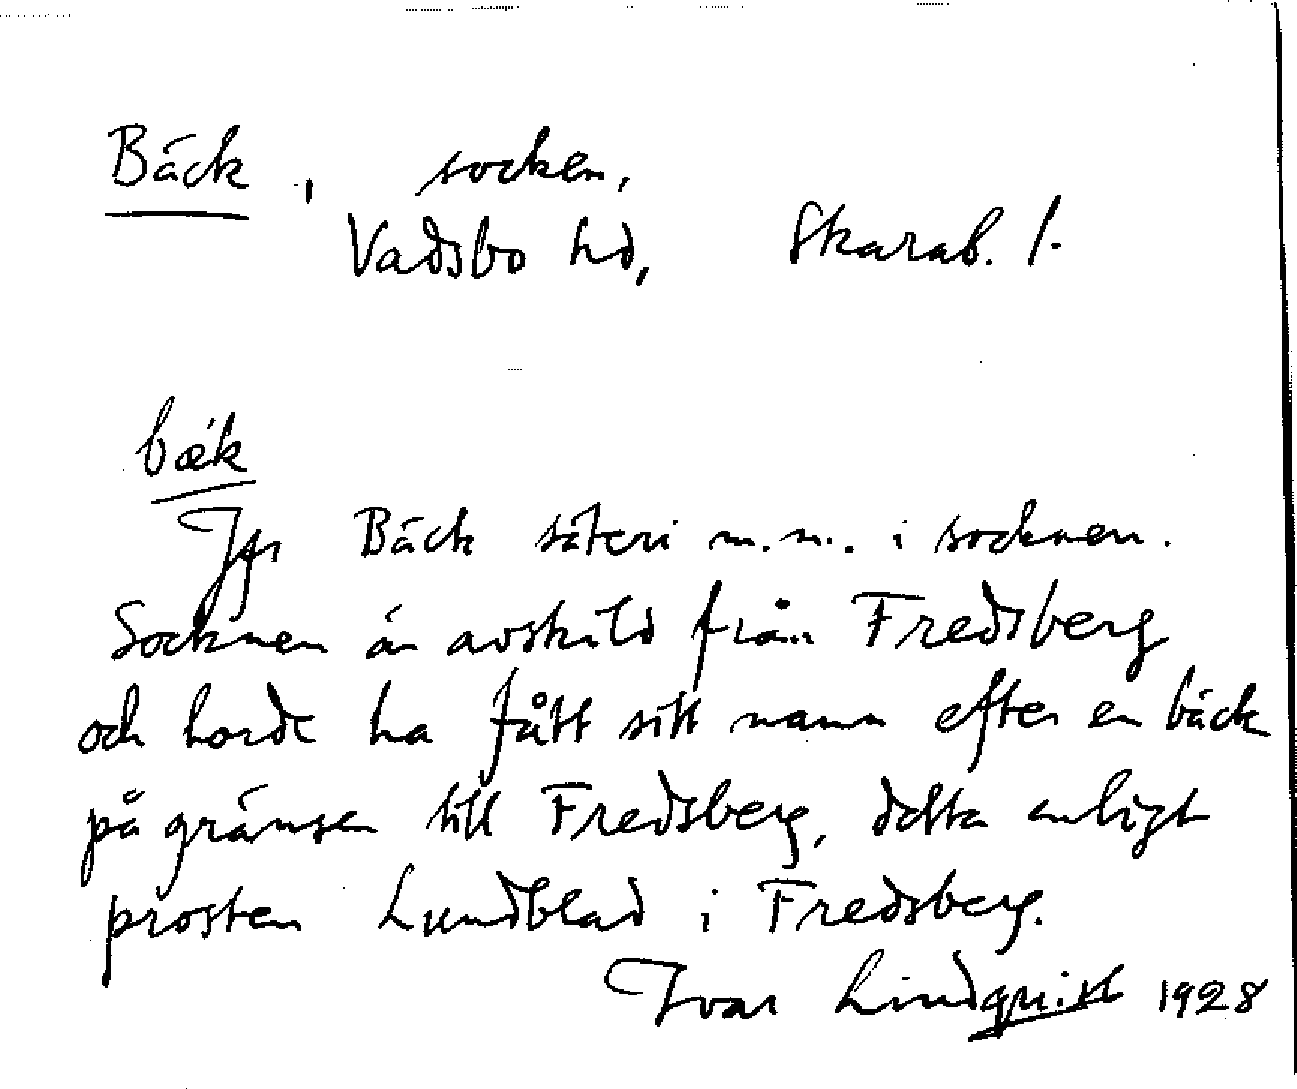 Bäck, socken,
Vadsbo hd, Skarab. l.
bæ´k
Jfr Bäck säteri m.m. i socknen.
Socknen är avskild från Fredsberg
och torde ha fått sitt namn efter en bäck
på gränsen till Fredsberg, detta enligt
prosten Lundblad i Fredsberg.
Ivar Lindquist 1928